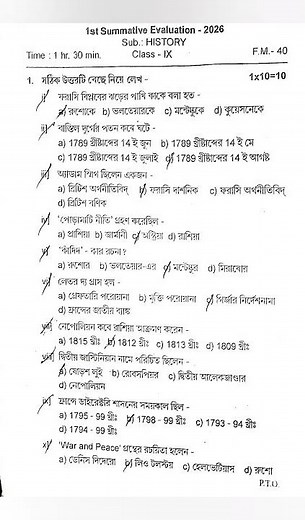 1st Summative Evaluation - 2026
Sub.: HISTORY
Time : 1 hr. 30 min. Class - IX F.M.- 40
1. সঠিক উত্তরটি বেছে নিয়ে লেখ - 1x10=10
i) ফরাসি বিপ্লবের ঝড়ের পাখি কাকে বলা হত -
a) রুশোকে b) ভলতেয়ারকে c) মন্টেস্কুকে d) কুয়েসনেকে
ii) বাস্তিল দুর্গের পতন কবে ঘটে -
a) 1789 খ্রীষ্টাব্দের 14 ই জুন b) 1789 খ্রীষ্টাব্দের 14 ই মে
c) 1789 খ্রীষ্টাব্দের 14 ই জুলাই d) 1789 খ্রীষ্টাব্দের 14 ই আগষ্ট
iii) অ্যাডাম স্মিথ ছিলেন একজন -
a) ব্রিটিশ অর্থনীতিবিদ্ b) ফরাসি দার্শনিক c) ফরাসি অর্থনীতিবিদ্
d) ব্রিটিশ বণিক
iv) 'পোড়ামাটি নীতি' গ্রহণ করেছিল -
a) প্রাশিয়া b) জার্মানী c) অস্ট্রিয়া d) রাশিয়া
v) 'কাঁদিদ' - কার রচনা?
a) রুশোর b) ভলতেয়ার-এর c) মন্টেস্কুর d) মিরাবোর
vi) লেতর দ্য গ্রাস হল -
a) গ্রেফতারি পরোয়ানা b) মুক্তি পরোয়ানা c) গির্জার নির্দেশনামা
d) ফ্রান্সের জাতীয় ব্যাঙ্ক
vii) নেপোলিয়ন কবে রাশিয়া আক্রমণ করেন -
a) 1815 খ্রীঃ b) 1812 খ্রীঃ c) 1813 খ্রীঃ d) 1809 খ্রীঃ
viii) দ্বিতীয় জাস্টিনিয়ান নামে পরিচিত ছিলেন -
a) ষোড়শ লুই b) রোবসপিয়র c) দ্বিতীয় আলেকজান্ডার
d) নেপোলিয়ন
ix) ফ্রান্সে ডাইরেক্টরি শাসনের সময়কাল ছিল -
a) 1795 - 99 খ্রীঃ b) 1798 - 99 খ্রীঃ c) 1793 - 94 খ্রীঃ
d) 1794 - 99 খ্রীঃ
x) 'War and Peace' গ্রন্থের রচয়িতা হলেন -
a) ডেনিস দিদেরো b) লিও টলস্টয় c) হেলভেটিয়াস d) রুশো
P.T.O.